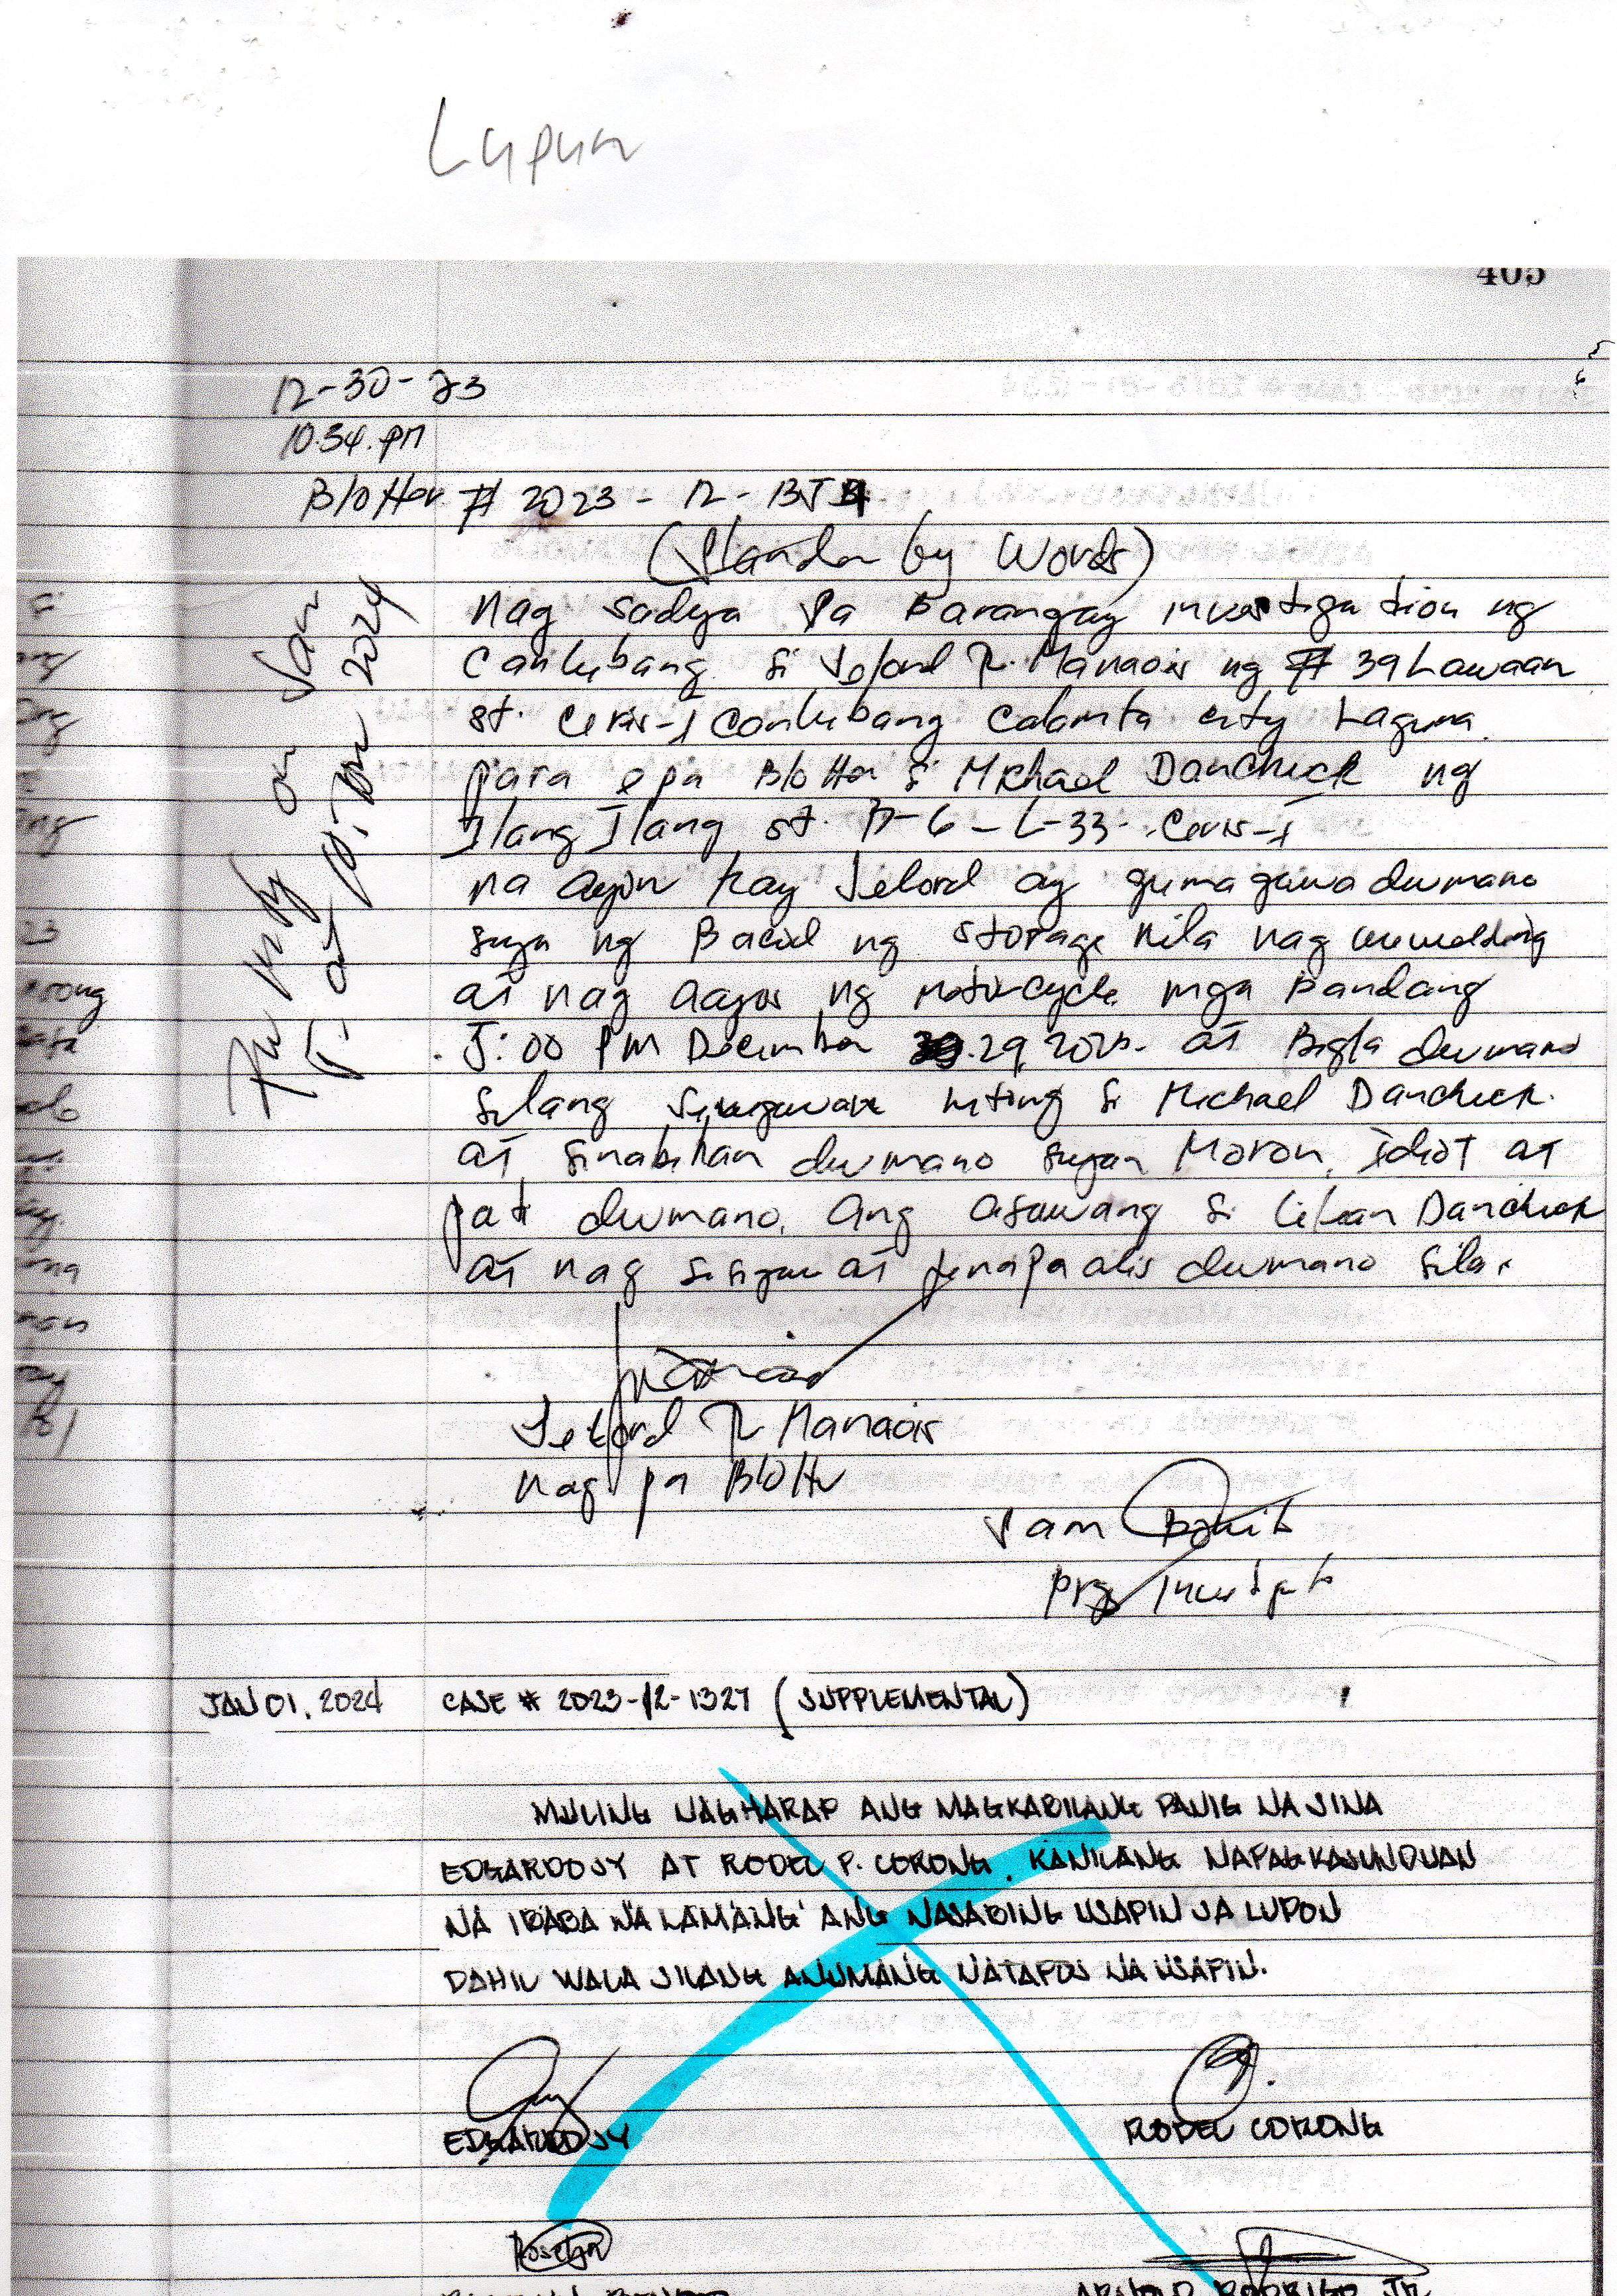 Lupun
405
12-30-23
10:34.pm
Blotter # 2023 - 12 -
(Slander by Words)
nag sadya sa Barangay investigation ng
Canlubang si Jelord R. Manaois ng # 39 Lawaan
st. Ceris-I Canlubang Calamba city Laguna.
para epa Blotter si Michael Dancheck ng
Ilang Ilang st. B-6-L-33-Ceris-I
na ayon kay Jelord ay gumagawa dumano
sya ng Bacod ng storage nila nag wewelding
at nag aayos ng motorcycle mga Bandang
:00 PM December 29, at Bigla dumano
silang nitong si Michael Dancheck.
at sinabihan dumano syan Moron, idiot at
pati dumano. ang asawang si Dancheck
at nag sisigaw at pinapaalis dumano sila.
Jelord R Manaois
nag pa Blotter
Sam
on Jan
2024
JAN 01, 2024 CASE # 2023-12-1327 (SUPPLEMENTAL)
MULING NAGHARAP ANG MAGKABILANG PANIG NA SINA
EDGARDO SY AT RODEL P. CORONG. KANILANG NAPAGKASUNDUAN
NA IBABA NA LAMANG ANG NASABING USAPIN SA LUPON
DAHIL WALA SILANG ANUMANG NATAPOS NA USAPIN.
EDGARDO SY RODEL CORONG
ARNOLD RODRIGO JR.